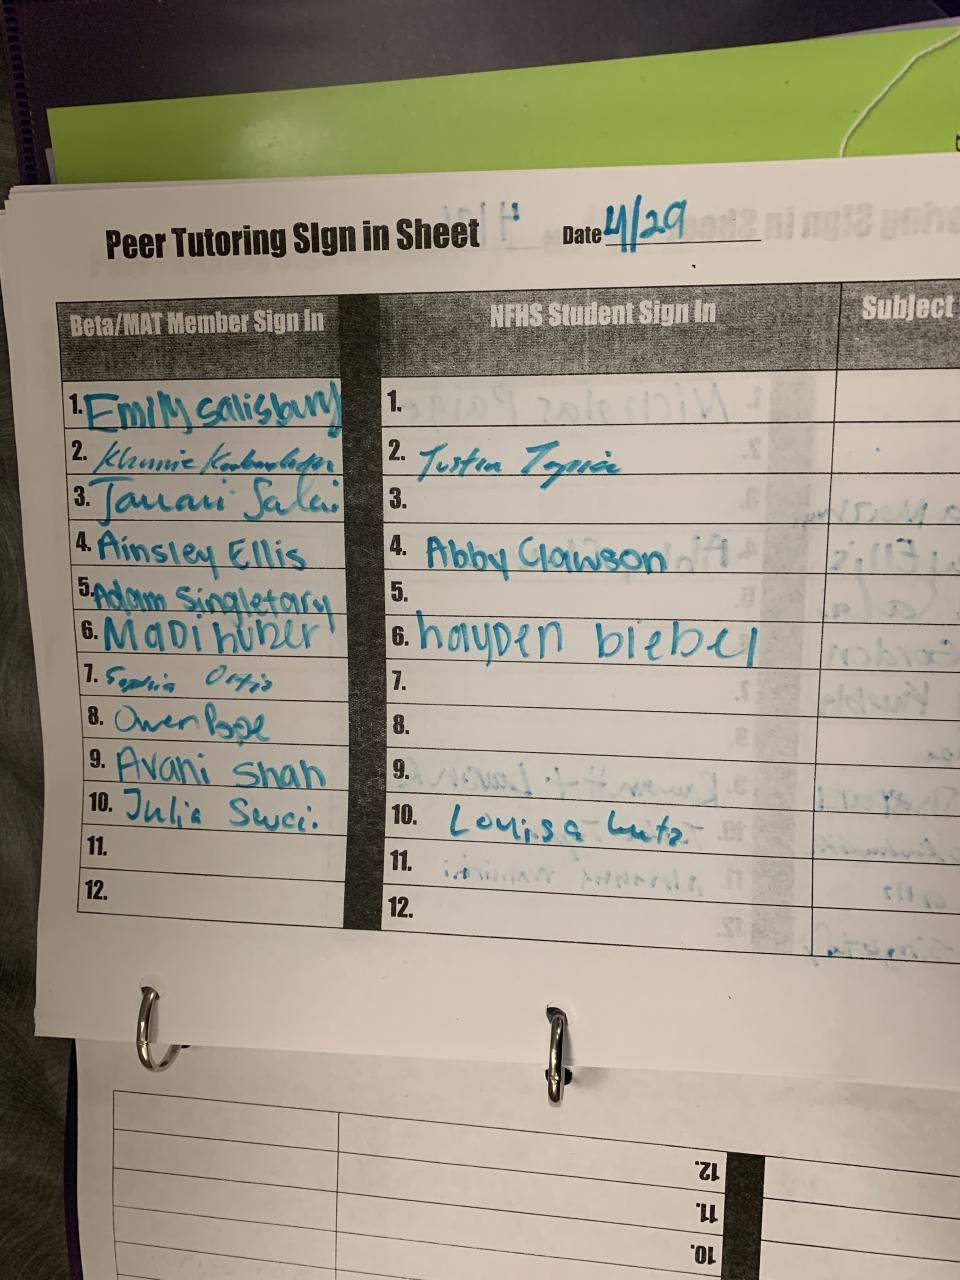 Peer Tutoring SIgn in Sheet Date 4/29
Beta/MAT Member Sign In NFHS Student Sign In Subject
1. Emily Salisbury 1.
2. 2. Justin Tapia
3. 3.
4. Ainsley Ellis 4. Abby Clawson
5. Adam Singletary 5.
6. Madi huber 6. hayden biebel
7. Sophia Ortiz 7.
8. Owen Pope 8.
9. Avani Shah 9.
10. Julia 10. Louisa Lutz
11. 11.
12. 12.
12.
11.
10.